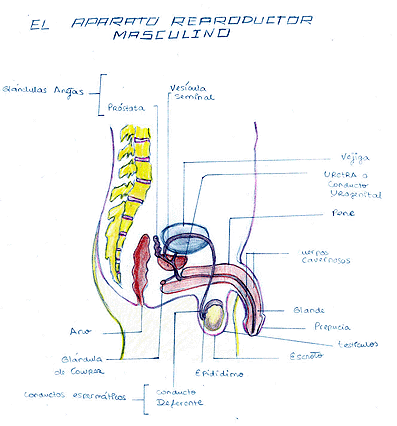 EL APARATO REPRODUCTOR
MASCULINO
Glándulas Anejas
Vesícula
seminal
Próstata
Vejiga
URETRA o
Conducto
Urogenital
Pene
uerpos
Cavernosos
Glande
Prepucio
testículos
Escroto
Ano
Epidídimo
Glándula
de Cowper
Conductos espermáticos
Conducto
Deferente